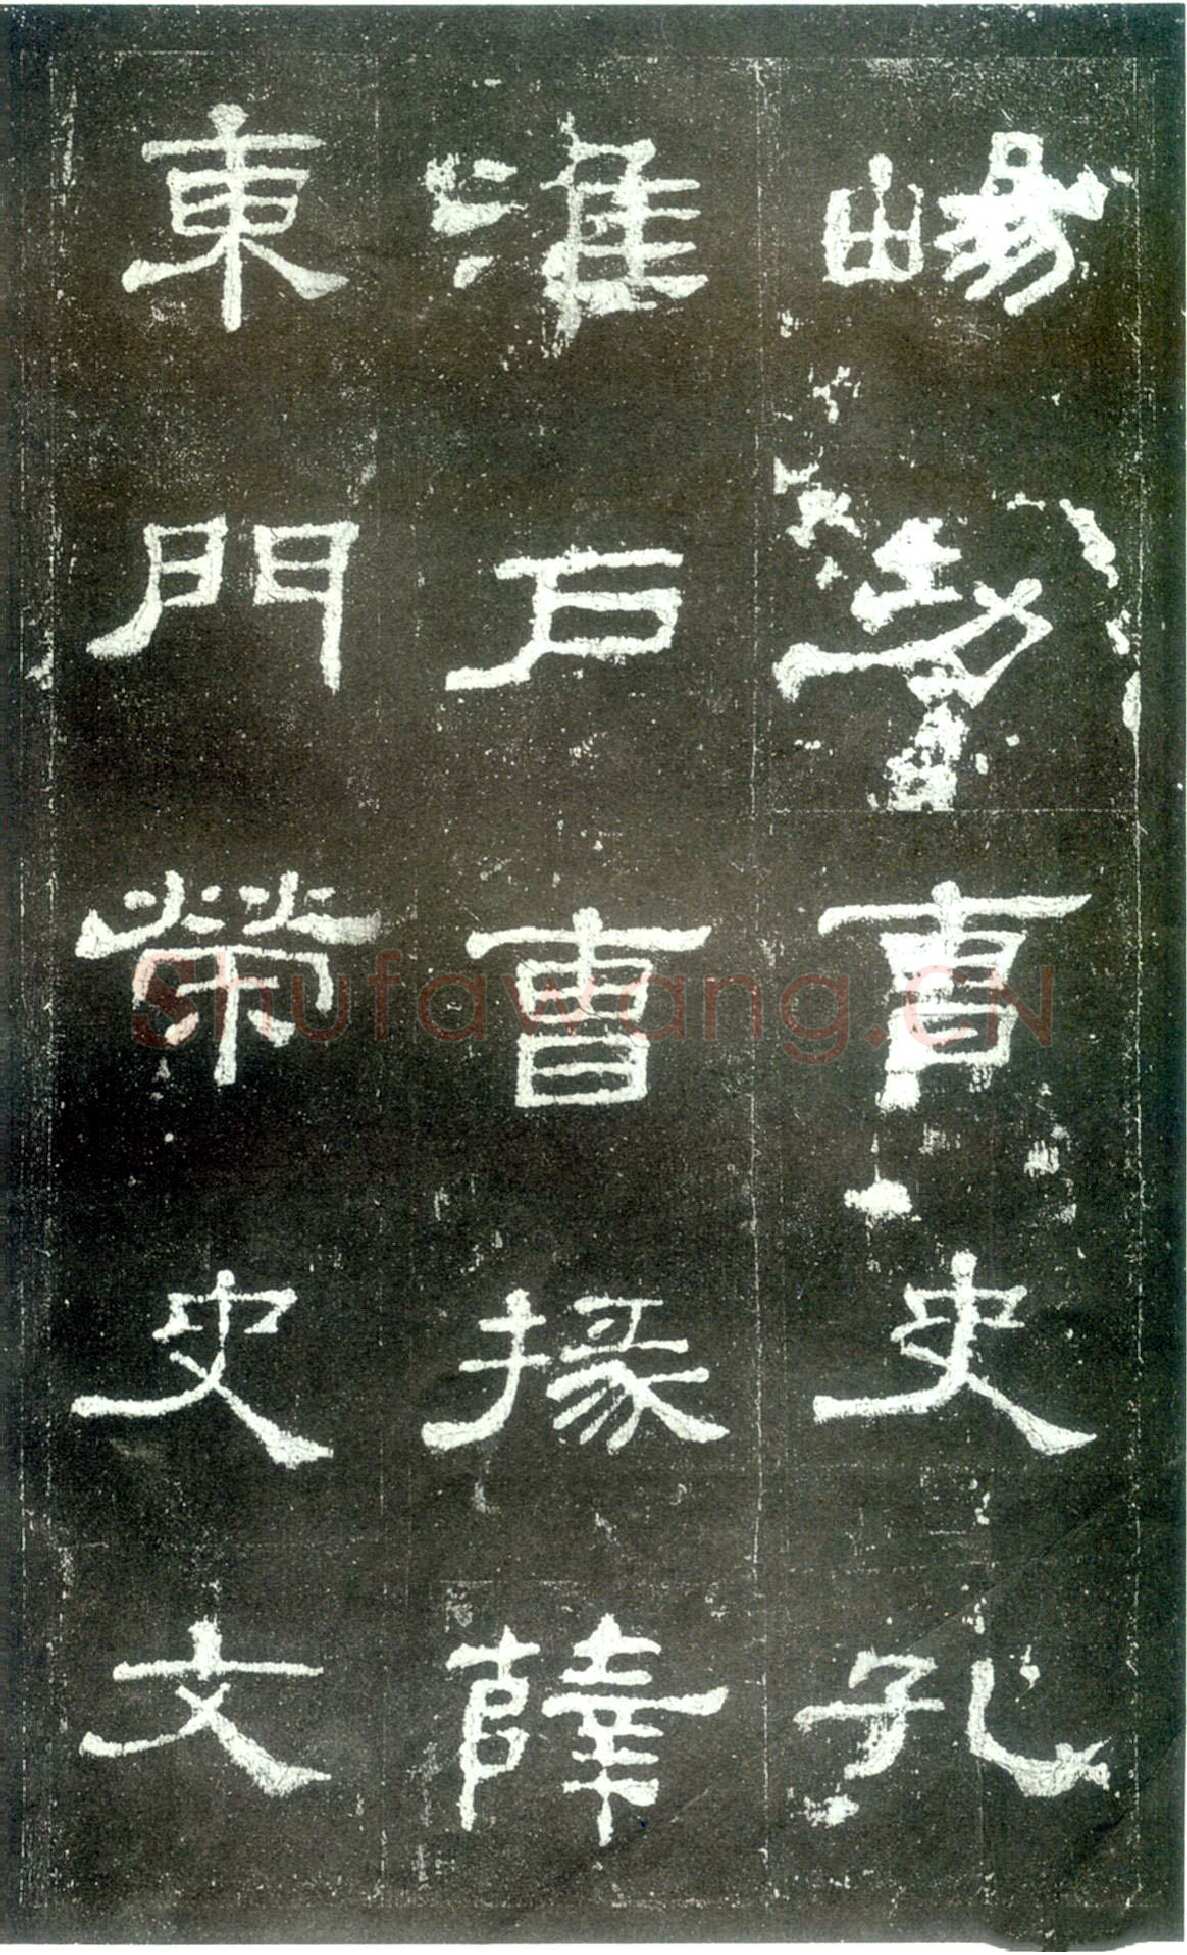 暘功曹史孔
淮戶曹掾薛
東門榮史文
Shufawang.CN